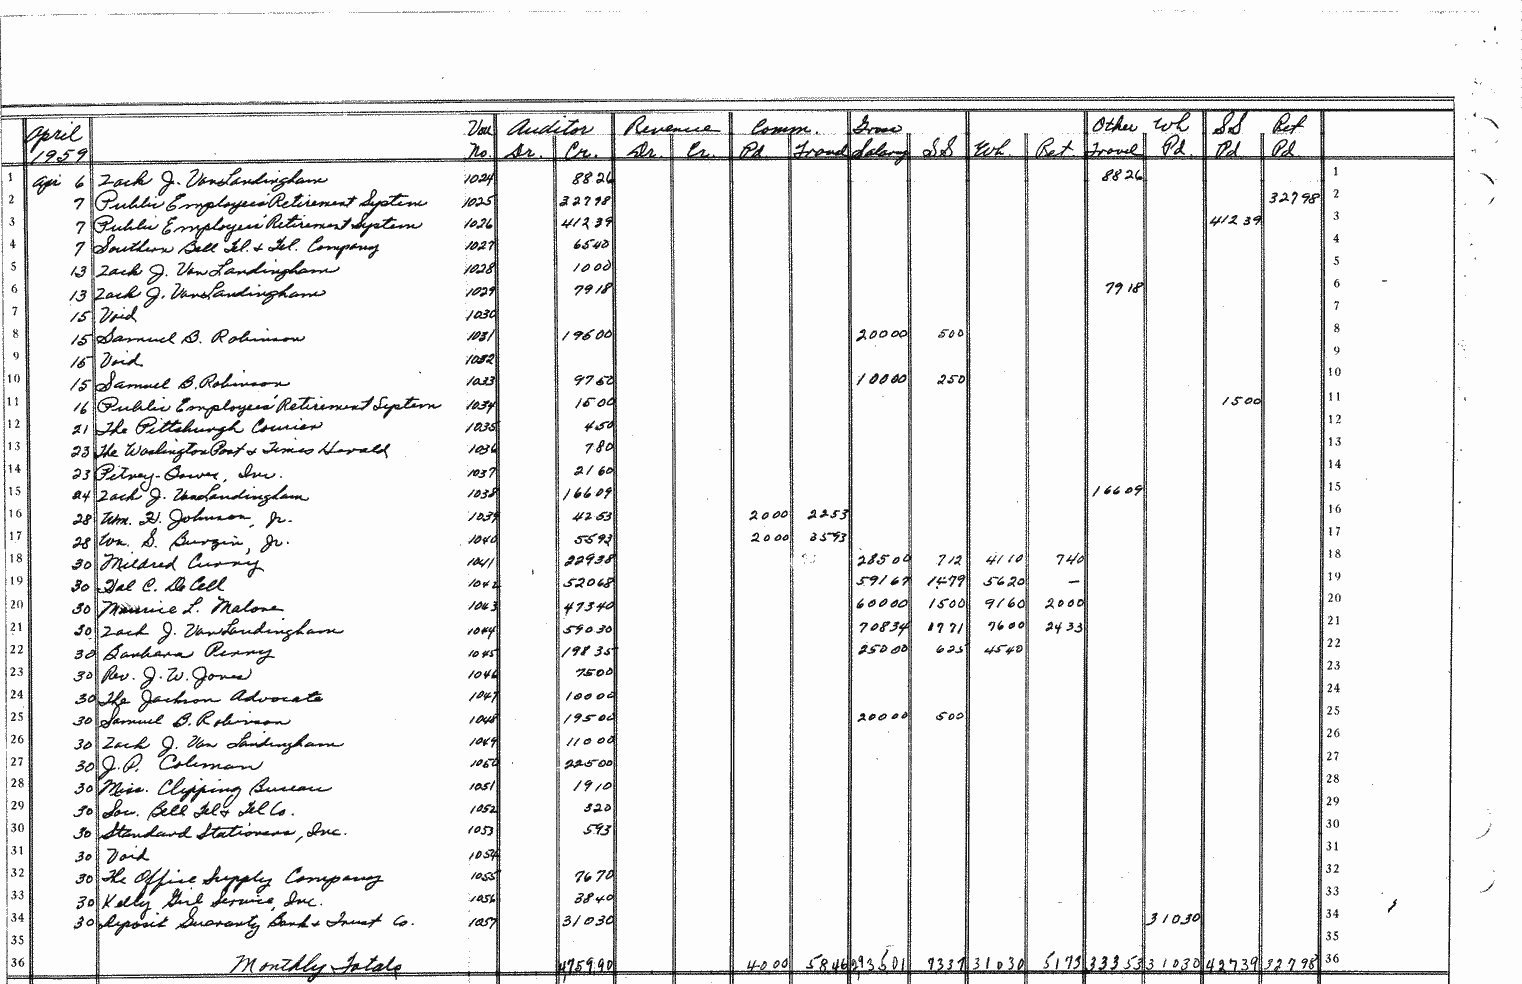 April Vou Auditor Revenue Comm. Gross Other Wh SS Ret
1959 No. Dr. Cr. Dr. Cr. Pd Travel Salary SS Wh. Ret. Travel Pd. Pd Pd.
1 Apr 6 Zack J. VanLandingham 1024 88 26 88 26 1
2 7 Public Employees' Retirement System 1025 327 98 327 98 2
3 7 Public Employees' Retirement System 1026 412 39 412 39 3
4 7 Southern Bell Tel. & Tel. Company 1027 65 40 4
5 13 Zack J. Van Landingham 1028 10 00 5
6 13 Zack J. VanLandingham 1029 79 18 79 18 6
7 15 Void 1030 7
8 15 Samuel B. Robinson 1031 195 00 200 00 5 00 8
9 15 Void 1032 9
10 15 Samuel B. Robinson 1033 97 50 100 00 2 50 10
11 16 Public Employees' Retirement System 1034 15 00 15 00 11
12 21 The Pittsburgh Courier 1035 4 50 12
13 23 The Washington Post & Times Herald 1036 7 80 13
14 23 Pitney-Bowes, Inc. 1037 21 60 14
15 24 Zack J. VanLandingham 1038 166 09 166 09 15
16 28 Wm. H. Johnson, Jr. 1039 42 53 20 00 22 53 16
17 28 Wm. S. Burgin, Jr. 1040 55 93 20 00 35 93 17
18 30 Mildred Curry 1041 229 38 285 00 7 12 41 10 7 40 18
19 30 Hal C. DeCell 1042 520 68 591 67 14 79 56 20 — 19
20 30 Maurice L. Malone 1043 473 40 600 00 15 00 91 60 20 00 20
21 30 Zack J. VanLandingham 1044 590 30 708 34 17 71 76 00 24 33 21
22 30 Barbara Perry 1045 198 35 250 00 6 25 45 40 22
23 30 Rev. J. W. Jones 1046 75 00 23
24 30 The Jackson Advocate 1047 100 00 24
25 30 Samuel B. Robinson 1048 195 00 200 00 5 00 25
26 30 Zack J. Van Landingham 1049 110 00 26
27 30 J. P. Coleman 1050 225 00 27
28 30 Miss. Clipping Bureau 1051 19 10 28
29 30 Sou. Bell Tel & Tel Co. 1052 3 20 29
30 30 Standard Stationers, Inc. 1053 5 93 30
31 30 Void 1054 31
32 30 The Office Supply Company 1055 76 70 32
33 30 Kelly Girl Service, Inc. 1056 38 40 33
34 30 Deposit Guaranty Bank & Trust Co. 1057 310 30 310 30 34
35 35
36 Monthly Totals 4,759 90 40 00 58 46 2,935 01 73 37 310 30 51 73 333 53 310 30 427 39 327 98 36